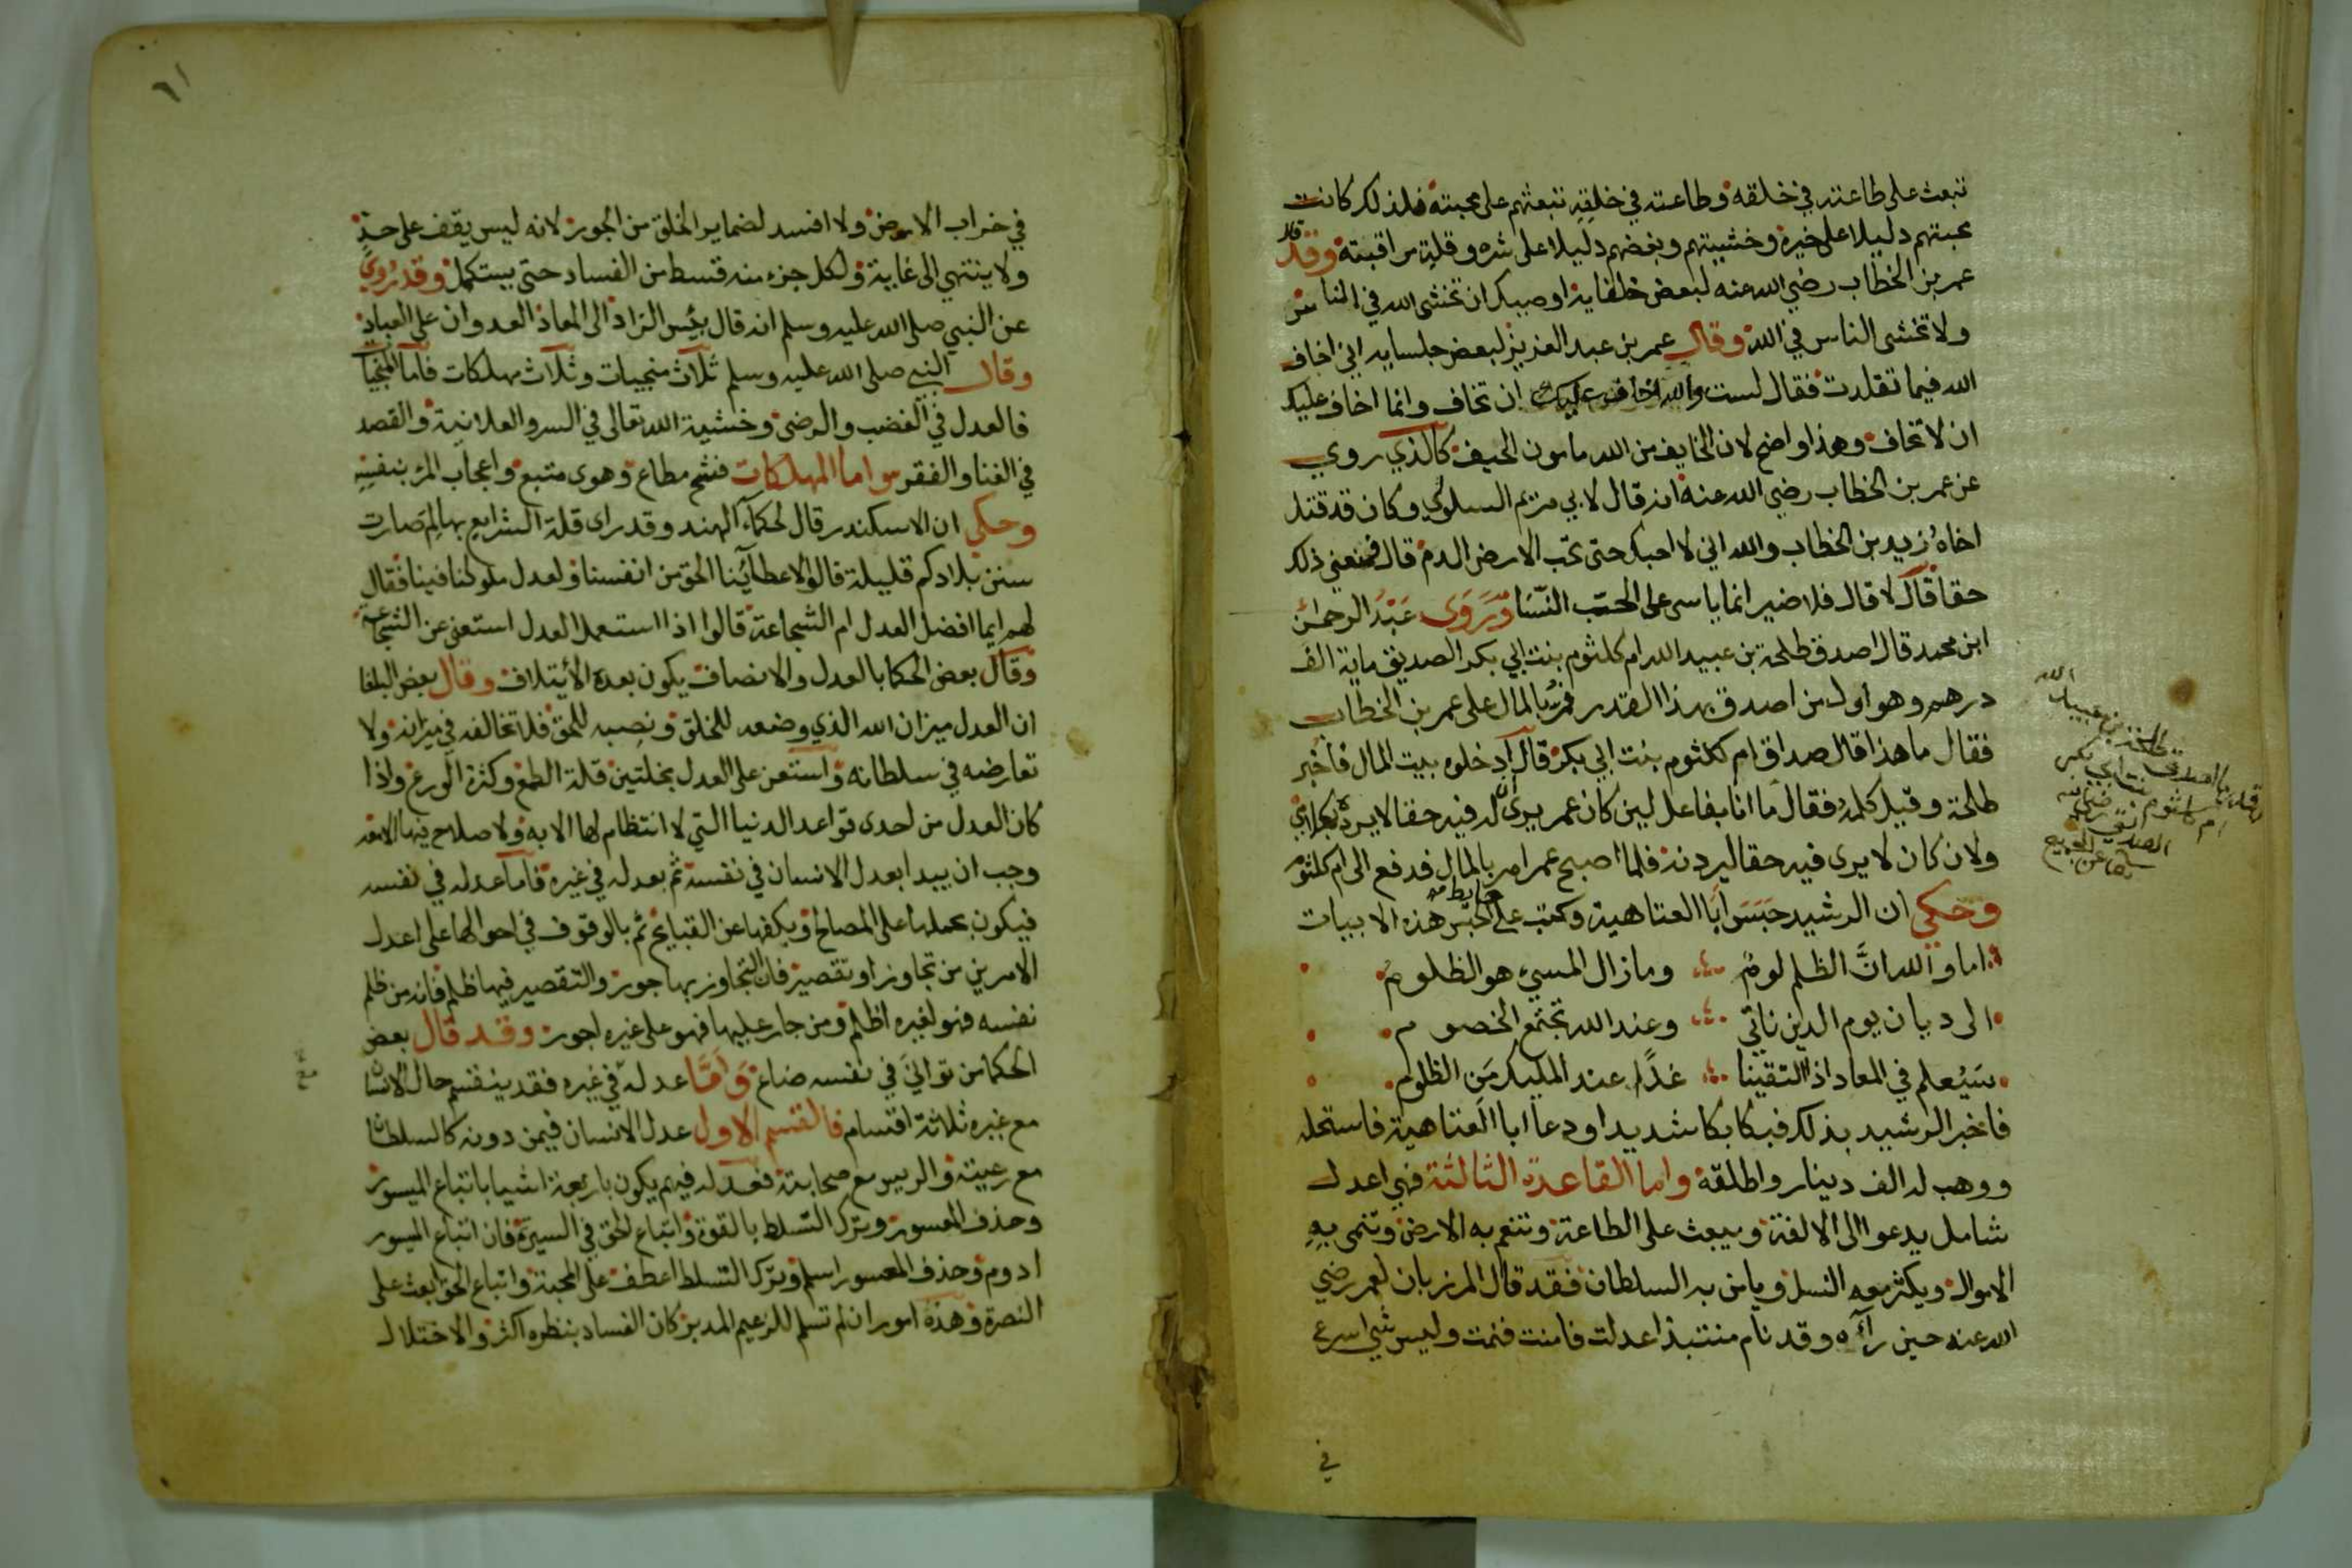 تبعث على طاعته في خلقه وطاعته في خلقه تبعثهم على محبته فلذلك كانت
محبتهم دليلا على خيره وخشيتهم وبغضهم دليلا على شره وقلة مراقبته وقد قال
عمر بن الخطاب رضي الله عنه لبعض خلفايه اوصيك ان تخشى الله في الناس
ولا تخشى الناس في الله وقال عمر بن عبد العزيز لبعض جلسايه اني اخاف
الله فيما تقلدت فقال لست والله اخاف عليك ان تخاف وانما اخاف عليك
ان لا تخاف وهذا واضح لان الخايف من الله مامون الحيف كالذي روي
عن عمر بن الخطاب رضي الله عنه انه قال لابي مريم السلولي وكان قد قتل
اخاه زيد بن الخطاب والله اني لا احبك حتى تحب الارض الدم قال فيمنعني ذلك
حقا قال لا قال فلا ضير انما ياسى على الحب النسا وروى عبد الرحمن
ابن محمد قال اصدق طلحة بن عبيد الله ام كلثوم بنت ابي بكر الصديق ماية الف
درهم وهو اول من اصدق بهذا القدر فمر بالمال على عمر بن الخطاب
فقال ما هذا قال صداق ام كلثوم بنت ابي بكر قال ادخلوه بيت المال فاخبر
طلحة وقيل كلمه فقال ما انا بفاعل لين كان عمر يرى له فيه حقا لا يرده بكلامي
ولان كان لا يرى فيه حقا ليردنه فلما اصبح عمر امر بالمال فدفع الى ام كلثوم
وحكي ان الرشيد حبس ابا العتاهية وكتب على حايط الحبس هذه الابيات
اما والله ان الظلم لوم وما زال المسيء هو الظلوم
الى ديان يوم الدين ناتي وعند الله تجتمع الخصوم
ستعلم في المعاد اذا التقينا غدا عند المليك من الظلوم
فاخبر الرشيد بذلك فبكا بكا شديدا ودعا ابا العتاهية فاستحله
ووهب له الف دينار واطلقه واما القاعدة الثالثة فهي اعدل
شامل يدعوا الى الالفة ويبعث على الطاعة وتنعم به الارض وتنمى به
الاموال ويكثر معه النسل ويامن به السلطان فقد قال المرزبان لعمر رضي
الله عنه حين رآه وقد نام منتبذا عدلت فامنت فنمت وليس شي اسرع
في
ام كلثوم بنت ابي بكر
الصديق
٦١
في خراب الارض ولا افسد لضماير الخلق من الجور لانه ليس يقف على حد
ولا ينتهي الى غاية ولكل جزء منه قسط من الفساد حتى يستكمل وقد روي
عن النبي صلى الله عليه وسلم انه قال بئس الزاد الى المعاد العدوان على العباد
وقال النبي صلى الله عليه وسلم ثلاث منجيات وثلاث مهلكات فاما المنجيا
فالعدل في الغضب والرضى وخشية الله تعالى في السر والعلانية والقصد
في الغنا والفقر واما المهلكات فشح مطاع وهوى متبع واعجاب المرء بنفسه
وحكي ان الاسكندر قال لحكماء الهند وقد راى قلة الشرايع بها لم صارت
سنن بلادكم قليلة قالوا لاعطائنا الحق من انفسنا ولعدل ملوكنا فينا فقال
لهم ايما افضل العدل ام الشجاعة قالوا اذا استعمل العدل استغنى عن الشجاعة
وقال بعض الحكما بالعدل والانصاف يكون بعده الأيتلاف وقال بعض البلغا
ان العدل ميزان الله الذي وضعه للخلق ونصبه للحق فلا تخالفه في ميزانه ولا
تعارضه في سلطانه واستعن على العدل بخلتين قلة الطمع وكثرة الورع واذا
كان العدل من احدى قواعد الدنيا التي لا انتظام لها الا به ولا صلاح فيها الا معه
وجب ان يبدا بعدل الانسان في نفسه ثم بعدله في غيره فاما عدله في نفسه
فيكون بحملها على المصالح وبكفها عن القبايح ثم بالوقوف في احوالها على اعدل
الامرين من تجاوز او تقصير فان التجاوز بها جور والتقصير فيها ظلم فانه من ظلم
نفسه فهو لغيره اظلم ومن جار عليها فهو على غيره اجور وقد قال بعض
الحكما من توانى في نفسه ضاع واما عدله في غيره فقد ينقسم حال الانسان
مع غيره ثلاثة اقسام فالقسم الاول عدل الانسان فيمن دونه كالسلطان
مع رعيته والرييس مع صحابته فعدله فيهم يكون باربعة اشيا باتباع الميسور
وحذف المعسور وترك التسلط بالقوة واتباع الحق في السيرة فان اتباع الميسور
ادوم وحذف المعسور اسلم وترك التسلط اعطف على المحبة واتباع الحق ابعث على
النصرة وهذه امور ان لم تسلم للزعيم المدبر كان الفساد بنظره اكثر والاختلال